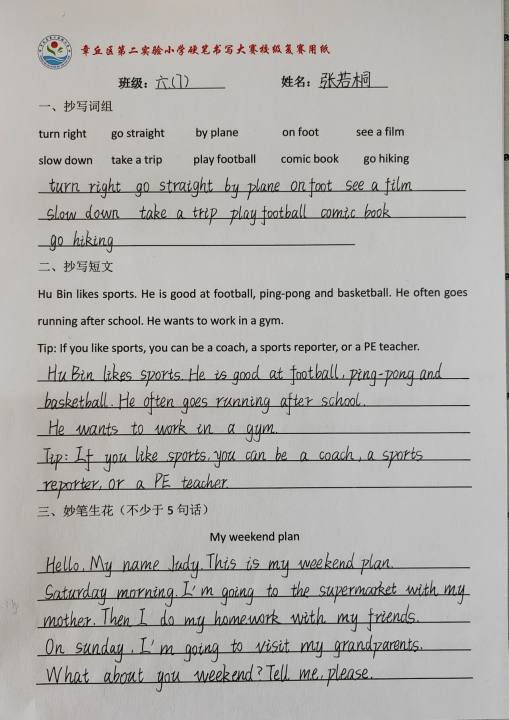 章丘区第二实验小学硬笔书写大赛校级复赛用纸
班级：六(7) 姓名：张若桐
一、抄写词组
turn right go straight by plane on foot see a film
slow down take a trip play football comic book go hiking
turn right go straight by plane on foot see a film
slow down take a trip play football comic book
go hiking
二、抄写短文
Hu Bin likes sports. He is good at football, ping-pong and basketball. He often goes
running after school. He wants to work in a gym.
Tip: If you like sports, you can be a coach, a sports reporter, or a PE teacher.
Hu Bin likes sports. He is good at football, ping-pong and
basketball. He often goes running after school.
He wants to work in a gym.
Tip: If you like sports, you can be a coach, a sports
reporter, or a PE teacher.
三、妙笔生花（不少于5句话）
My weekend plan
Hello. My name Judy. This is my weekend plan.
Saturday morning. I'm going to the supermarket with my
mother. Then I do my homework with my friends.
On sunday, I'm going to visit my grandparents.
What about you weekend? Tell me, please.